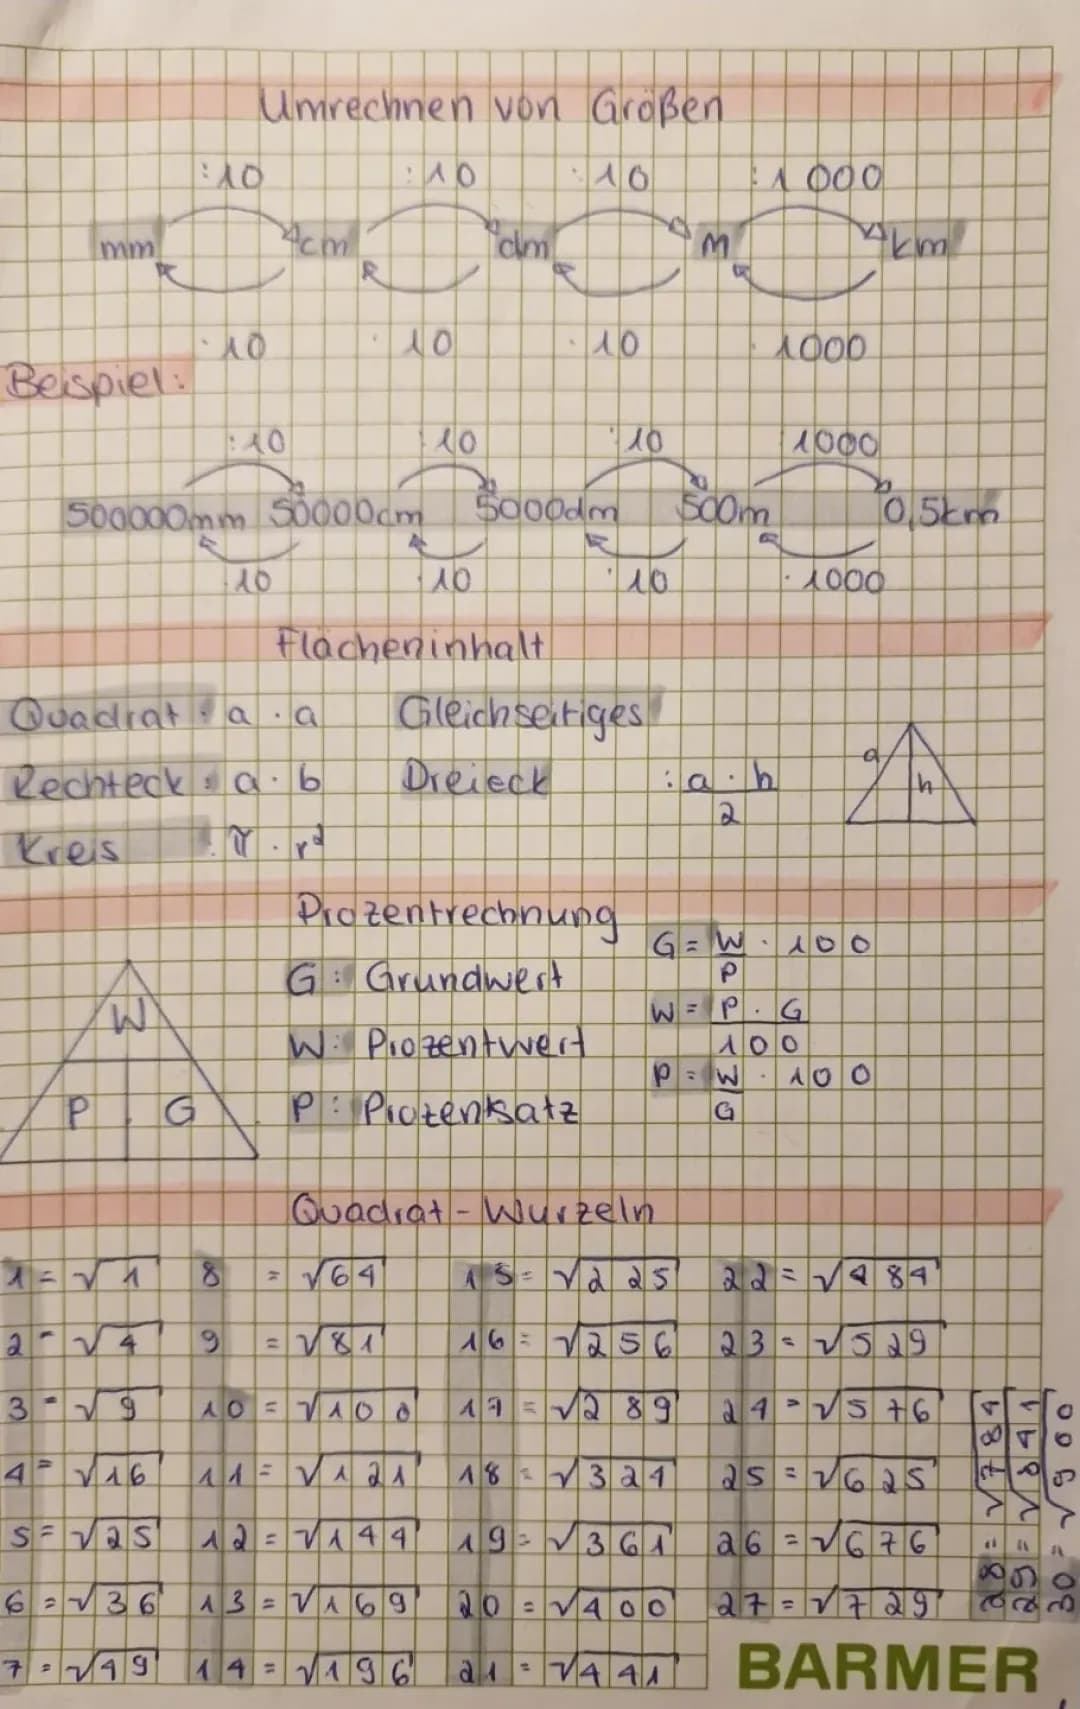 Umrechnen von Größen
:10 :10 :10 :1000
mm cm dm m km
·10 ·10 ·10 ·1000
Beispiel:
:10 :10 :10 :1000
500000mm 50000cm 5000dm 500m 0,5km
·10 ·10 ·10 ·1000
Flächeninhalt
Quadrat : a · a
Rechteck : a · b
Kreis : π · r²
Gleichseitiges
Dreieck : a · h
2
a
h
Prozentrechnung
W
P G
G: Grundwert
W: Prozentwert
P: Prozentsatz
G = W · 100
P
W = P · G
100
P = W · 100
G
Quadrat-Wurzeln
1 = √1
2 = √4
3 = √9
4 = √16
5 = √25
6 = √36
7 = √49
8 = √64
9 = √81
10 = √100
11 = √121
12 = √144
13 = √169
14 = √196
15 = √225
16 = √256
17 = √289
18 = √324
19 = √361
20 = √400
21 = √441
22 = √484
23 = √529
24 = √576
25 = √625
26 = √676
27 = √729
28 = √784
29 = √841
30 = √900
BARMER